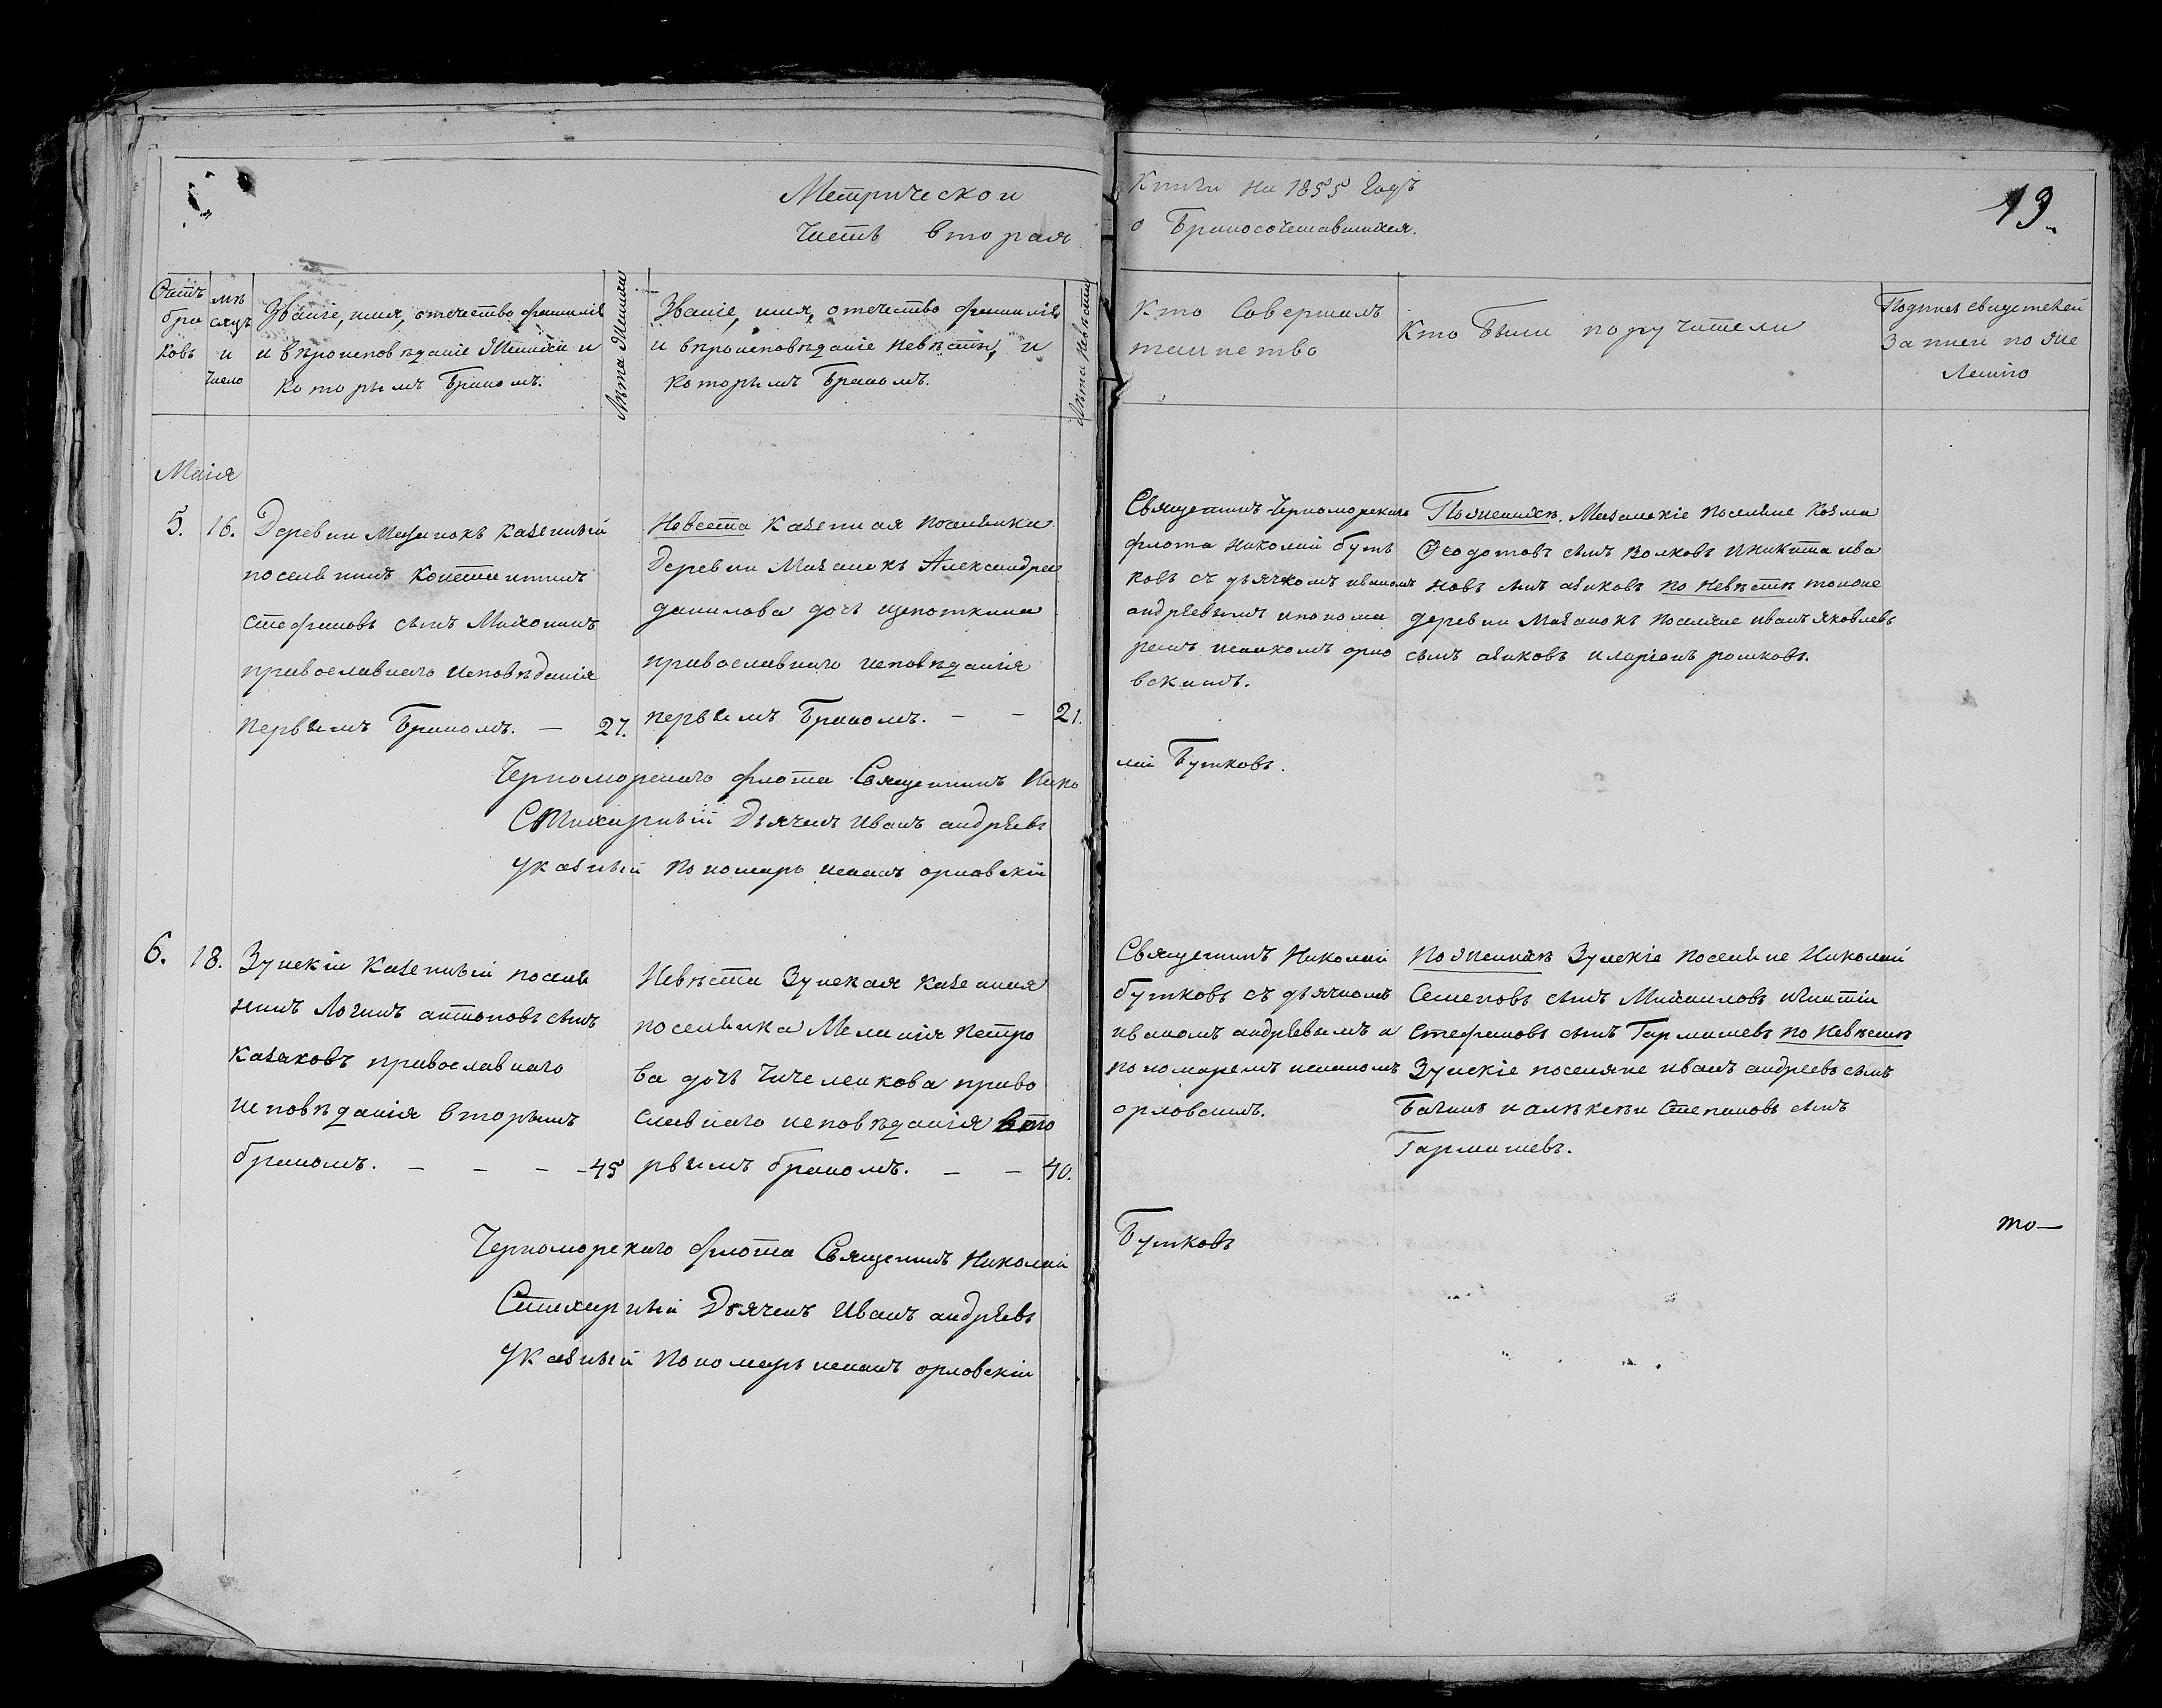 Метрической
Часть вторая
Книги на 1855 Годъ
о Бракосочетавшихся.
19.
Счетъ
бра
ковъ
мѣ
сяцъ
и
число
Званіе, имя, отечество фамилія
и вѣроисповѣданіе Жениха и
которымъ Бракомъ.
Лѣта Жениха
Званіе, имя, отечество фамилія
и вѣроисповѣданіе невѣсты, и
которымъ Бракомъ.
Лѣта невѣсты
Кто Совершалъ
таинство
Кто Были поручители
Подпись свидетелей
Записи по же
ланію
Маія
5. 16.
Деревни Мазанокъ казенный
поселянинъ Константинъ
Стефановъ сынъ Махонинъ
православнаго исповѣданія
первымъ Бракомъ. — 27.
Невеста казенная поселянка
Деревни Мазанокъ Александра
данилова дочь щепоткина
православнаго исповѣданія
первымъ Бракомъ. — — 21.
Священникъ Черноморскаго
флота Николай бут
ковъ съ дьячкомъ иваномъ
андрѣевымъ и понома
ремъ исаакомъ орло
вскимъ.
По женихѣ. Мазанскіе поселяне Козма
Ѳеодотовъ сынъ Волковъ и никита ива
новъ сынъ азиковъ по невѣстѣ тойже
деревни Мазанокъ поселяне иванъ яковлевъ
сынъ азиковъ и ларіонъ рожковъ.
Черноморскаго флота Священникъ Нико
лай Бутковъ.
Стихарный Дьячекъ Иванъ андрѣевъ
Указный пономарь исаакъ орловскій
6. 18.
Зуйскій казенный поселя
нинъ Логинъ антоновъ сынъ
казаковъ православнаго
исповѣданія вторымъ
бракомъ. — — — — 45
Невѣста Зуйская казенная
поселянка Меланія Петро
ва дочь Чичеленкова право
славнаго исповѣданія вто
рымъ бракомъ. — — 40.
Священникъ Николай
бутковъ съ дьячкомъ
иваномъ андрѣевымъ и
пономаремъ исаакомъ
орловскимъ.
По женихѣ Зуйскіе поселяне Николай
Семеновъ сынъ Михаиловъ и
Стефановъ сынъ Гармашевъ по невѣстѣ
Зуйскіе поселяне иванъ андреевъ сынъ
и алѣксѣй Степановъ сынъ
Гармашевъ.
Черноморскаго флота Священникъ Николай
Бутковъ
то—
Стихарный Дьячекъ Иванъ андрѣевъ
Указный пономарь исаакъ орловскій